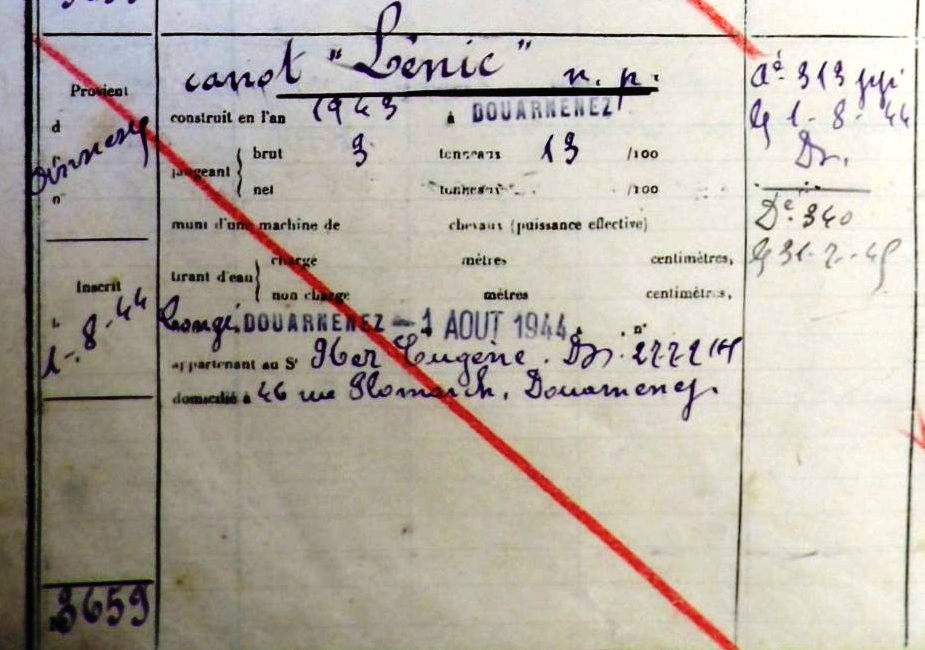 canot "Lénic" n. p.
Provient
construit en l'an 1943 à DOUARNENEZ
d
brut 3 tonneaux 13 /100
jaugeant
net tonneaux /100
n°
muni d'une machine de chevaux (puissance effective)
charge mètres centimètres,
tirant d'eau
non charge mètres centimètres,
Inscrit
le
1-8-44
Congé, DOUARNENEZ - 1 AOUT 1944 n°
appartenant au Sr Eugène. Dz. 2272
domicilié à 46 rue Plomarch, Douarnenez.
N° 3659
Aé 313
le 1-8-44
Dz.
Dé 340
le 31-7-45